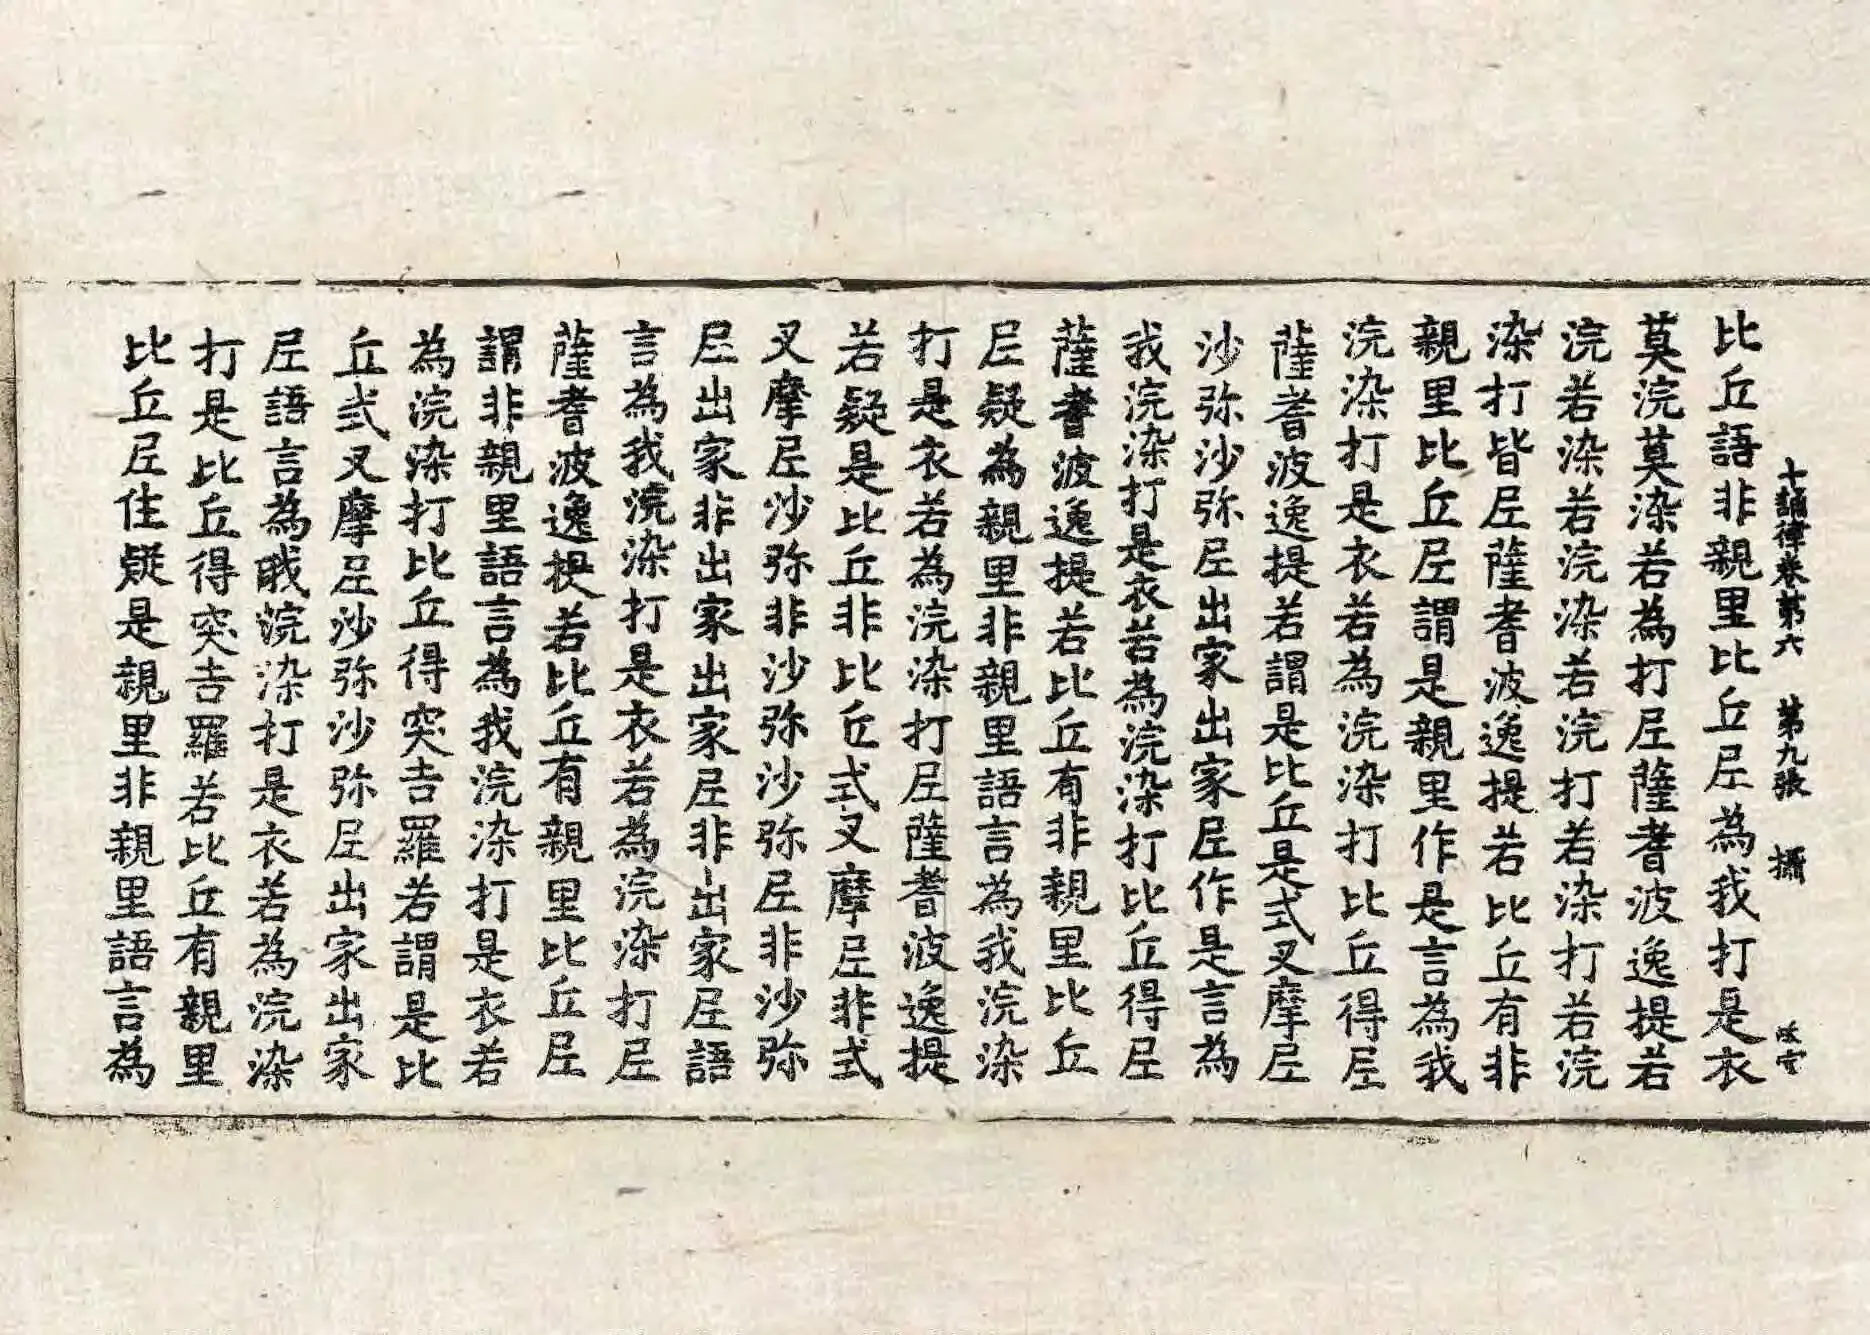 十誦律卷第六 第九張 攝
比丘語非親里比丘尼為我打是衣
莫浣莫染若為打尼薩耆波逸提若
浣若染若浣染若浣打若染打若浣
染打皆尼薩耆波逸提若比丘有非
親里比丘尼謂是親里作是言為我
浣染打是衣若為浣染打比丘得尼
薩耆波逸提若謂是比丘是式叉摩尼
沙弥沙弥尼出家出家尼作是言為
我浣染打是衣若為浣染打比丘得尼
薩耆波逸提若比丘有非親里比丘
尼疑為親里非親里語言為我浣染
打是衣若為浣染打尼薩耆波逸提
若疑是比丘非比丘式叉摩尼非式
叉摩尼沙弥非沙弥沙弥尼非沙弥
尼出家非出家出家尼非出家尼語
言為我浣染打是衣若為浣染打尼
薩耆波逸提若比丘有親里比丘尼
謂非親里語言為我浣染打是衣若
為浣染打比丘得突吉羅若謂是比
丘式叉摩尼沙弥沙弥尼出家出家
尼語言為我浣染打是衣若為浣染
打是比丘得突吉羅若比丘有親里
比丘尼住疑是親里非親里語言為